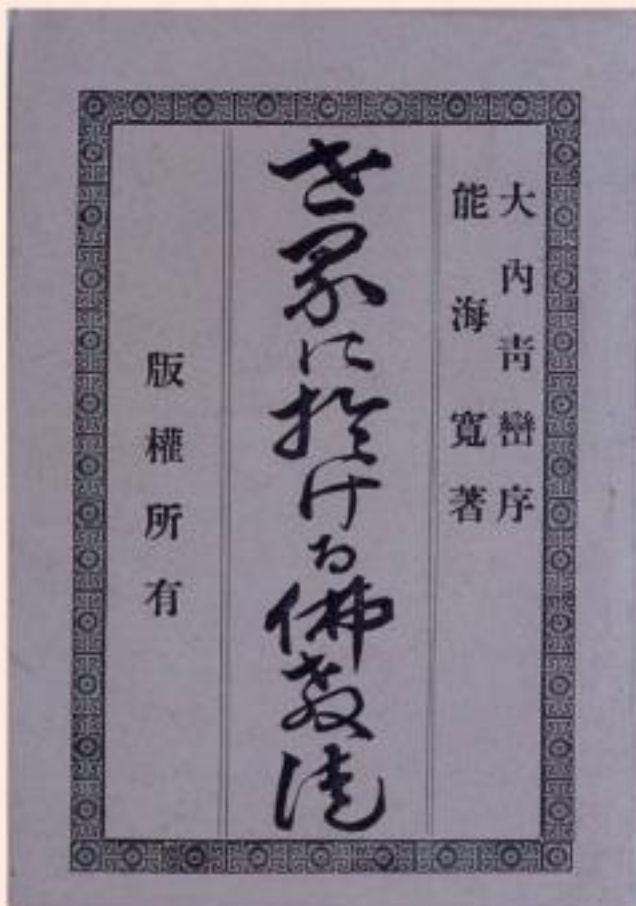 大內靑巒序
能海寬著
世界に於ける佛敎徒
版權所有